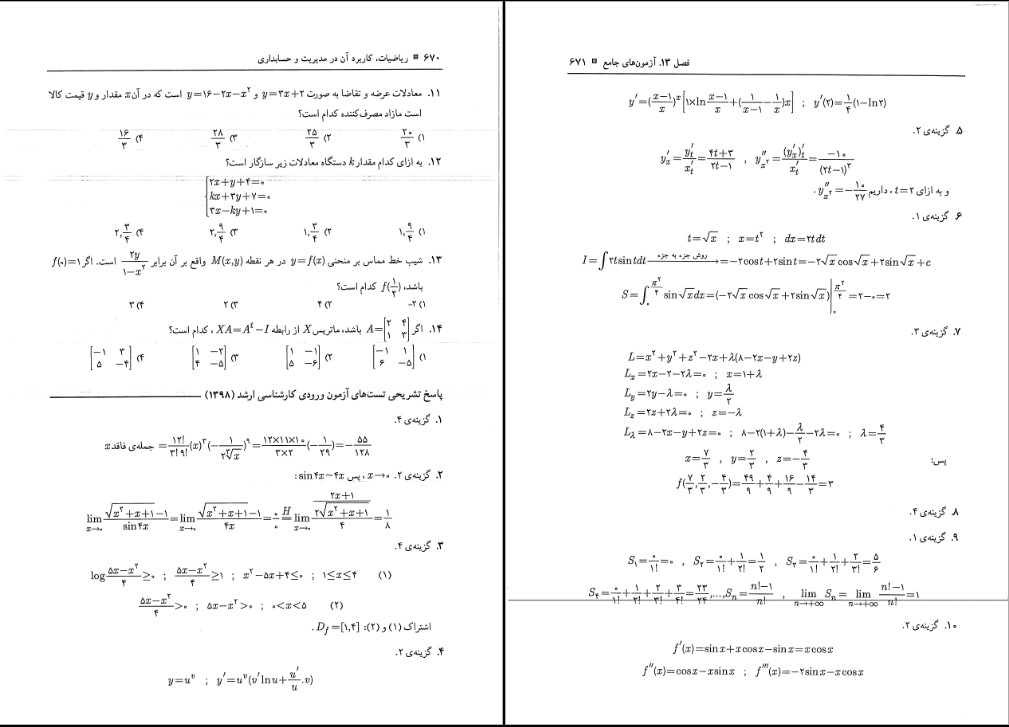 ۶۷۰ ■ ریاضیات، کاربرد آن در مدیریت و حسابداری
۱۱. معادلات عرضه و تقاضا به صورت y=۳x+۲ و y=۱۶−۲x−x² است که در آن x مقدار و y قیمت کالا
است مازاد مصرف‌کننده کدام است؟
۱) ۲۰/۳ ۲) ۲۵/۳ ۳) ۲۸/۳ ۴) ۱۶/۳
۱۲. به ازای کدام مقدار k دستگاه معادلات زیر سازگار است؟
۲x+y+۴=۰
kx+۳y+۷=۰
۳x−ky+۱=۰
۱) ۱,۹/۴ ۲) ۱,۳/۴ ۳) ۲,۹/۴ ۴) ۲,۳/۴
۱۳. شیب خط مماس بر منحنی y=f(x) در هر نقطه M(x,y) واقع بر آن برابر ۲y/(۱−x²) است. اگر f(۰)=۱
باشد، f(۱/۲) کدام است؟
۱) ۲− ۲) ۴ ۳) ۲ ۴) ۳
۱۴. اگر A=[۲ ۴; ۱ ۳] باشد، ماتریس X از رابطه XA=Aᵗ−I، کدام است؟
۱) [−۱ ۱; ۶ −۵] ۲) [۱ −۱; ۵ −۶] ۳) [۱ −۲; ۴ −۵] ۴) [−۱ ۳; ۵ −۴]
پاسخ تشریحی تست‌های آزمون ورودی کارشناسی ارشد (۱۳۹۸)
۱. گزینه‌ی ۴.
جمله‌ی فاقد x = ۱۲!/(۳!۹!) (x)³(−۱/(۲∛x))⁹ = (۱۲×۱۱×۱۰)/(۳×۲) (−۱/۲⁹) = −۵۵/۱۲۸
۲. گزینه‌ی ۲. x→۰، پس sin۴x~۴x:
lim x→۰ (√(x²+x+۱)−۱)/sin۴x = lim x→۰ (√(x²+x+۱)−۱)/۴x = ۰/۰ =H lim x→۰ ((۲x+۱)/(۲√(x²+x+۱)))/۴ = ۱/۸
۳. گزینه‌ی ۴.
log (۵x−x²)/۴ ≥۰ ; (۵x−x²)/۴ ≥۱ ; x²−۵x+۴≤۰ ; ۱≤x≤۴ (۱)
(۵x−x²)/۴ >۰ ; ۵x−x²>۰ ; ۰<x<۵ (۲)
اشتراک (۱) و (۲): D_f=[۱,۴].
۴. گزینه‌ی ۲.
y=uᵛ ; y′=uᵛ(v′lnu+u′/u.v)
فصل ۱۳. آزمون‌های جامع ■ ۶۷۱
y′=((x−۱)/x)ˣ[۱×ln (x−۱)/x+(۱/(x−۱)−۱/x)x] ; y′(۲)=۱/۴(۱−ln۲)
۵. گزینه‌ی ۲.
y′ₓ=y′ₜ/x′ₜ=(۴t+۳)/(۲t−۱) , y″ₓ²=(y′ₓ)′ₜ/x′ₜ=−۱۰/(۲t−۱)³
و به ازای t=۲، داریم y″ₓ²=−۱۰/۲۷.
۶. گزینه‌ی ۱.
t=√x ; x=t² ; dx=۲tdt
I=∫۲tsintdt روش جزء به جزء →=−۲tcost+۲sint=−۲√x cos√x+۲sin√x+c
S=∫₀^(π²/۴) sin√x dx=(−۲√x cos√x+۲sin√x)|₀^(π²/۴)=۲−۰=۲
۷. گزینه‌ی ۳.
L=x²+y²+z²−۲x+λ(۸−۲x−y+۲z)
Lₓ=۲x−۲−۲λ=۰ ; x=۱+λ
L_y=۲y−λ=۰ ; y=λ/۲
L_z=۲z+۲λ=۰ ; z=−λ
L_λ=۸−۲x−y+۲z=۰ ; ۸−۲(۱+λ)−λ/۲−۲λ=۰ ; λ=۴/۳
پس: x=۷/۳ , y=۲/۳ , z=−۴/۳
f(۷/۳,۲/۳,−۴/۳)=۴۹/۹+۴/۹+۱۶/۹−۱۴/۳=۳
۸. گزینه‌ی ۴.
۹. گزینه‌ی ۱.
S₁=۰/۱!=۰ , S₂=۰/۱!+۱/۲!=۱/۲ , S₃=۰/۱!+۱/۲!+۲/۳!=۵/۶
S₄=۰/۱!+۱/۲!+۲/۳!+۳/۴!=۲۳/۲۴,...,Sₙ=(n!−۱)/n! , lim n→+∞ Sₙ=lim n→+∞ (n!−۱)/n!=۱
۱۰. گزینه‌ی ۲.
f′(x)=sinx+xcosx−sinx=xcosx
f″(x)=cosx−xsinx ; f‴(x)=−۲sinx−xcosx